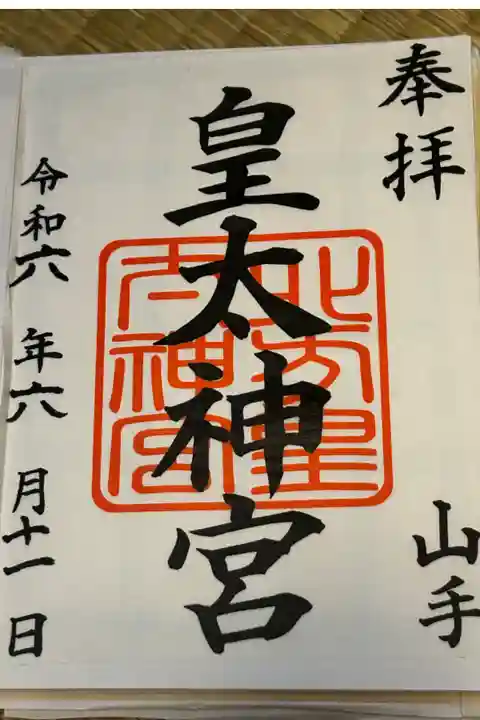 奉拝
山手
皇太神宮
北方皇太神宮
令和六年六月十一日